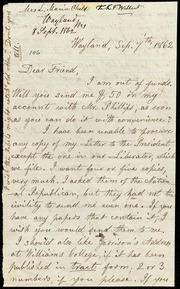 Mrs L. Maria Child
Wayland
8 Sept. 1862
106
Wayland, Sep. 7th, 1862
Dear Friend,
I am out of funds.
Will you send me $ 50 on my
account with Mr. Phillips, as soon
as you can do it with convenience?
I have been unable to procure
any copy of my Letter to the President,
except the one in our Liberator, which
we file. I want four or five copies,
very much. I asked them of the
Republican, but they had not the
civility to send me even one. If you
have any papers that contain it, I
wish you would send them to me.
I should also like Garrison's Address
at Williams College, if it has been
published in tract form; 2 or 3
numbers, if you please. If you